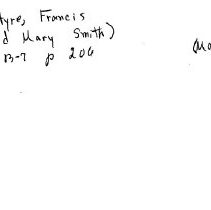 tyre, Francis
d Mary Smith)
B-7 p 206
(Mo